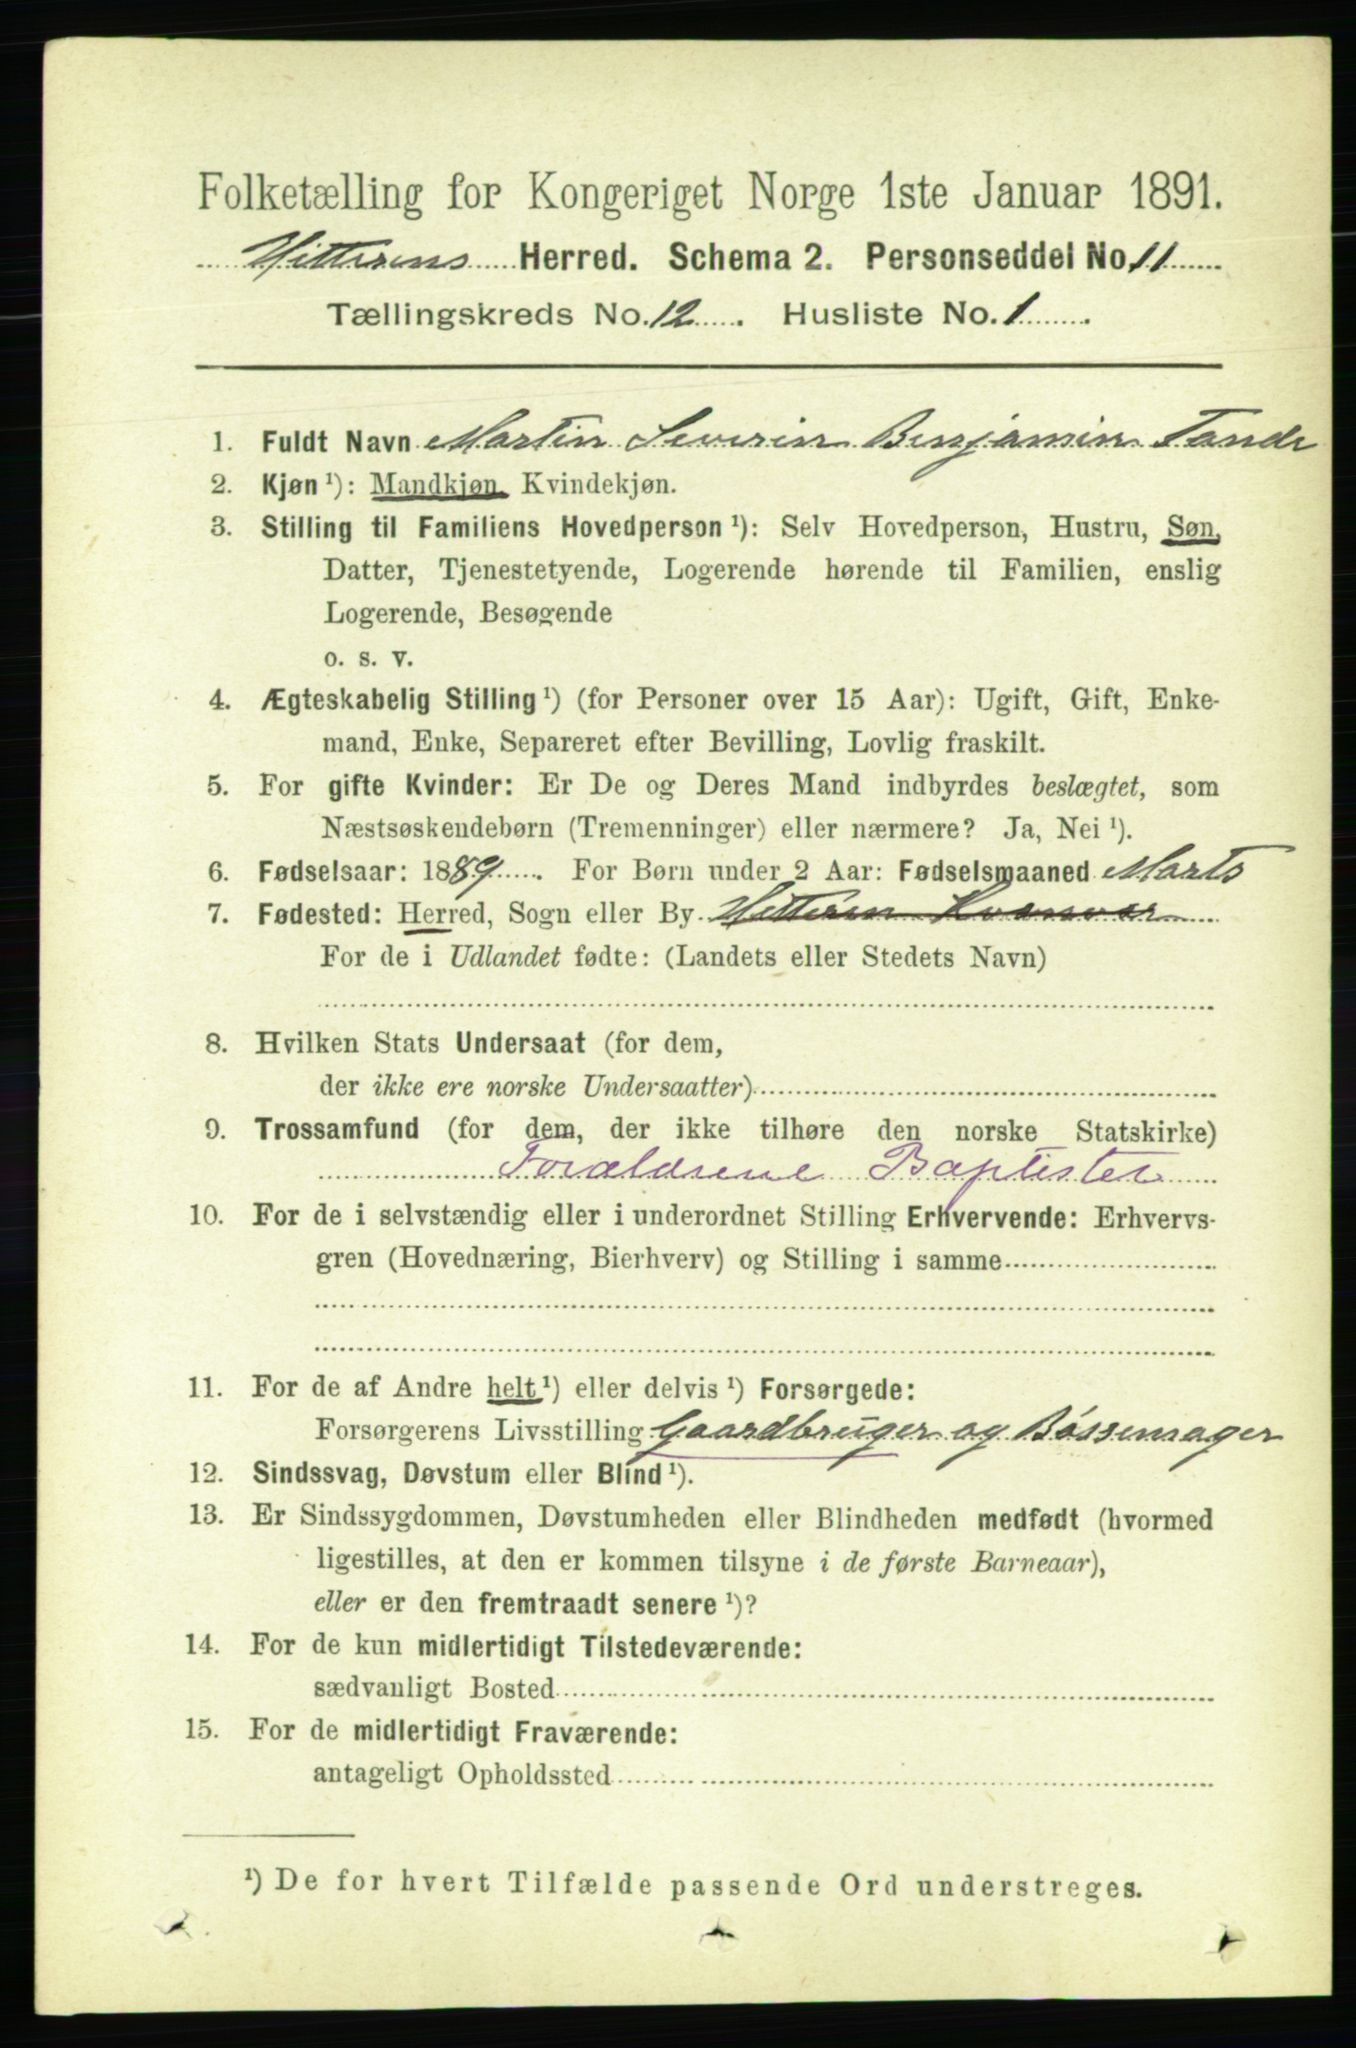 Folketælling for Kongeriget Norge 1ste Januar 1891.
Hitterens Herred. Schema 2. Personseddel No. 11
Tællingskreds No. 12. Husliste No. 1.
1. Fuldt Navn Martin Severin Benjamin Tande
2. Kjøn ¹): Mandkjøn. Kvindekjøn.
3. Stilling til Familiens Hovedperson ¹): Selv Hovedperson, Hustru, Søn,
Datter, Tjenestetyende, Logerende hørende til Familien, enslig
Logerende, Besøgende
o. s. v.
4. Ægteskabelig Stilling ¹) (for Personer over 15 Aar): Ugift, Gift, Enke-
mand, Enke, Separeret efter Bevilling, Lovlig fraskilt.
5. For gifte Kvinder: Er De og Deres Mand indbyrdes beslægtet, som
Næstsøskendebørn (Tremenninger) eller nærmere? Ja, Nei ¹).
6. Fødselsaar: 1889. For Børn under 2 Aar: Fødselsmaaned Marts
7. Fødested: Herred, Sogn eller By. Hitteren
For de i Udlandet fødte: (Landets eller Stedets Navn)
8. Hvilken Stats Undersaat (for dem,
der ikke ere norske Undersaatter)
9. Trossamfund (for dem, der ikke tilhøre den norske Statskirke)
Forældrene Baptister
10. For de i selvstændig eller i underordnet Stilling Erhvervende: Erhvervs-
gren (Hovednæring, Bierhverv) og Stilling i samme
11. For de af Andre helt ¹) eller delvis ¹) Forsørgede:
Forsørgerens Livsstilling Gaardbruger og Bøssemager
12. Sindssvag, Døvstum eller Blind ¹).
13. Er Sindssygdommen, Døvstumheden eller Blindheden medfødt (hvormed
ligestilles, at den er kommen tilsyne i de første Barneaar),
eller er den fremtraadt senere ¹)?
14. For de kun midlertidigt Tilstedeværende:
sædvanligt Bosted
15. For de midlertidigt Fraværende:
antageligt Opholdssted
¹) De for hvert Tilfælde passende Ord understreges.